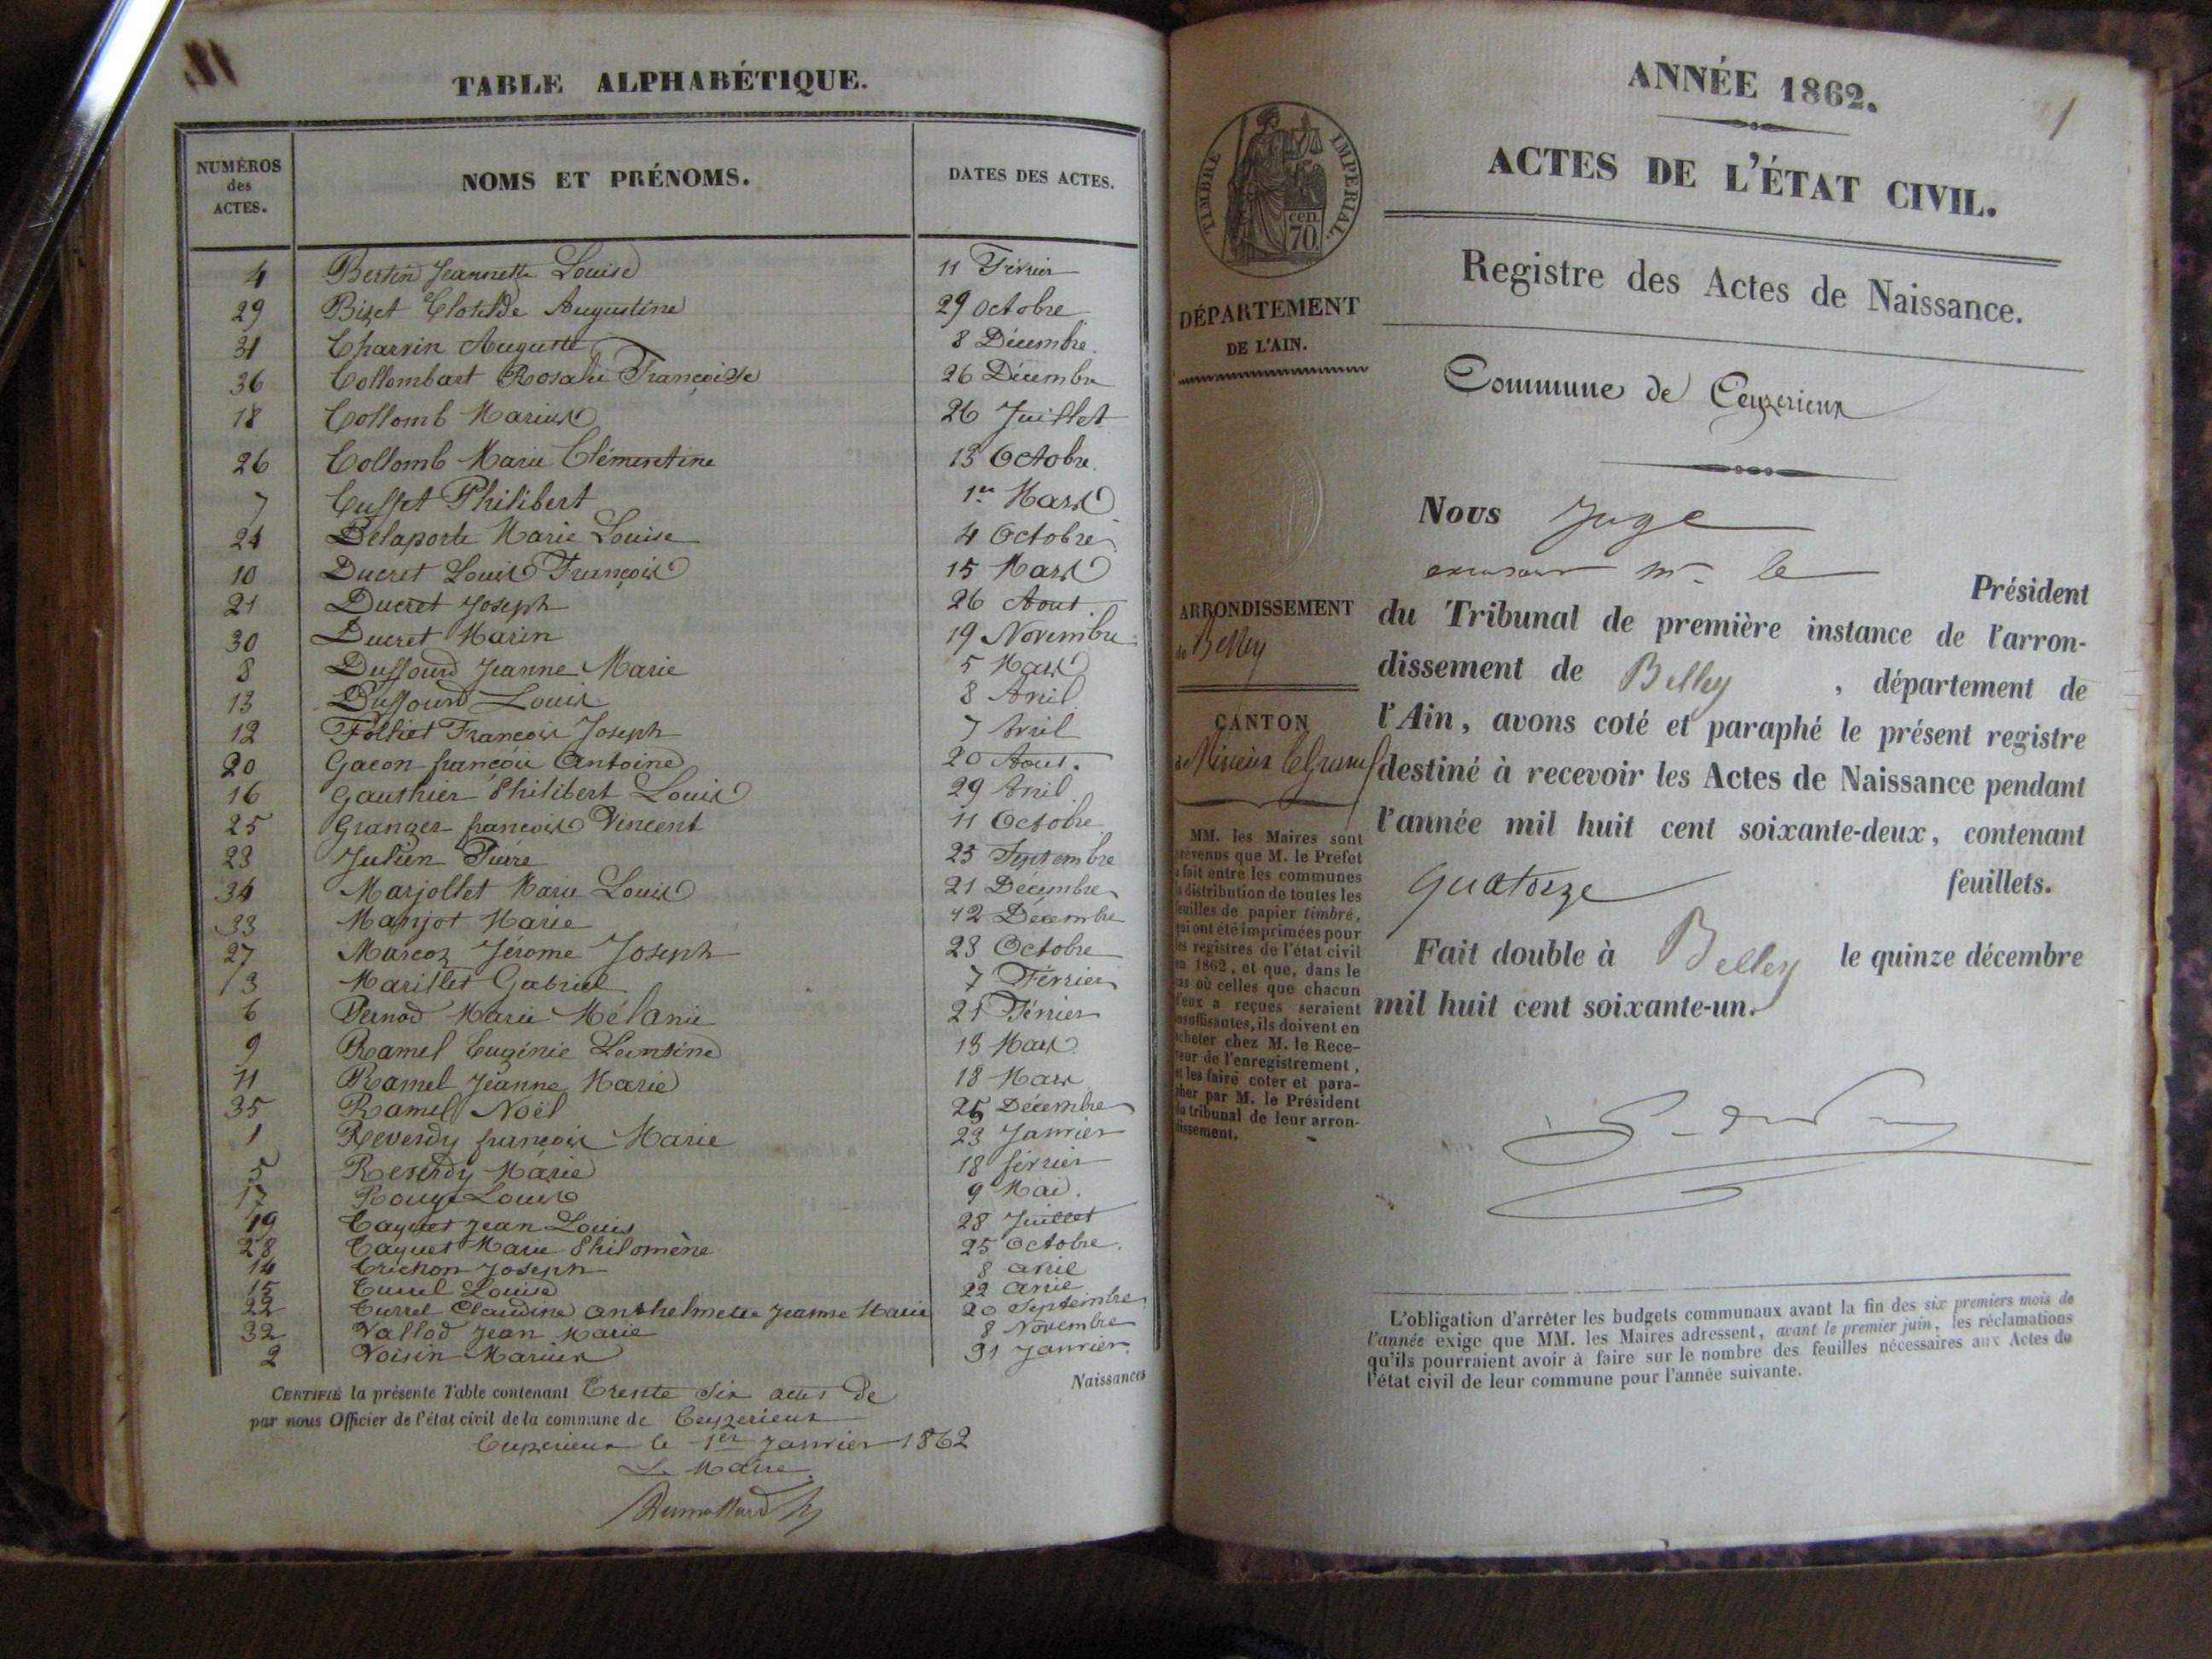 TABLE ALPHABÉTIQUE.
NUMÉROS des ACTES. NOMS ET PRÉNOMS. DATES DES ACTES.
4 Bertin Jeannette Louise 11 Février
29 Bizet Clotilde Augustine 29 Octobre
31 Charvin Auguste 8 Décembre
36 Collombart Rosalie Françoise 26 Décembre
18 Collomb Marius 26 Juillet
26 Collomb Marie Clémentine 13 Octobre
7 Cusset Philibert 1er Mars
24 Delaporte Marie Louise 4 Octobre
10 Ducret Louis François 15 Mars
21 Ducret Joseph 26 Aout
30 Ducret Marin 19 Novembre
8 Dussourd Jeanne Marie 5 Mars
13 Dussourd Louis 8 Avril
12 Folliet François Joseph 7 Avril
20 Gacon françois Antoine 20 Aout.
16 Gauthier Philibert Louis 29 Avril
25 Granger françois Vincent 11 Octobre
23 Julien Pierre 25 Septembre
34 Marjollet Marie Louis 21 Décembre
33 Manjot Marie 12 Décembre
27 Marcoz Jérome Joseph 23 Octobre
3 Marillet Gabriel 7 Février
6 Pernod Marie Mélanie 21 Février
9 Ramel Eugénie 13 Mars
11 Ramel Jeanne Marie 18 Mars
35 Ramel Noël 25 Décembre
1 Reverdy françois Marie 23 Janvier
5 Reverdy Marie 18 février
17 Rouge Louis 9 Mai.
19 Taquet Jean Louis 28 Juillet
28 Taquet Marie Philomène 25 Octobre.
14 Trichon Joseph 8 avril
15 Louise 22 avril
22 Turrel Claudine Anthelmette Jeanne Marie 20 Septembre
32 Vallod Jean Marie 8 Novembre
2 Voisin Marius 31 Janvier.
CERTIFIÉ la présente Table contenant Trente six actes de Naissances
par nous Officier de l'état civil de la commune de Ceyzerieux
Ceyzerieux le 1er Janvier 1862
Le Maire
ANNÉE 1862.
1
ACTES DE L'ÉTAT CIVIL.
TIMBRE IMPÉRIAL.
cen.
70.
Registre des Actes de Naissance.
DÉPARTEMENT
DE L'AIN.
Commune de Ceyzerieux
Nous Juge
m. le Président
ARRONDISSEMENT
de Belley
du Tribunal de première instance de l'arron-
dissement de Belley, département de
CANTON
l'Ain, avons coté et paraphé le présent registre
destiné à recevoir les Actes de Naissance pendant
l'année mil huit cent soixante-deux, contenant
quatorze feuillets.
Fait double à Belley le quinze décembre
mil huit cent soixante-un.
MM. les Maires sont
prévenus que M. le Préfet
a fait entre les communes
la distribution de toutes les
feuilles de papier timbré,
qui ont été imprimées pour
les registres de l'état civil
en 1862, et que, dans le
cas où celles que chacun
d'eux a reçues seraient
insuffisantes, ils doivent en
acheter chez M. le Rece-
veur de l'enregistrement,
et les faire coter et para-
pher par M. le Président
du tribunal de leur arron-
dissement.
L'obligation d'arrêter les budgets communaux avant la fin des six premiers mois de
l'année exige que MM. les Maires adressent, avant le premier juin, les réclamations
qu'ils pourraient avoir à faire sur le nombre des feuilles nécessaires aux Actes de
l'état civil de leur commune pour l'année suivante.